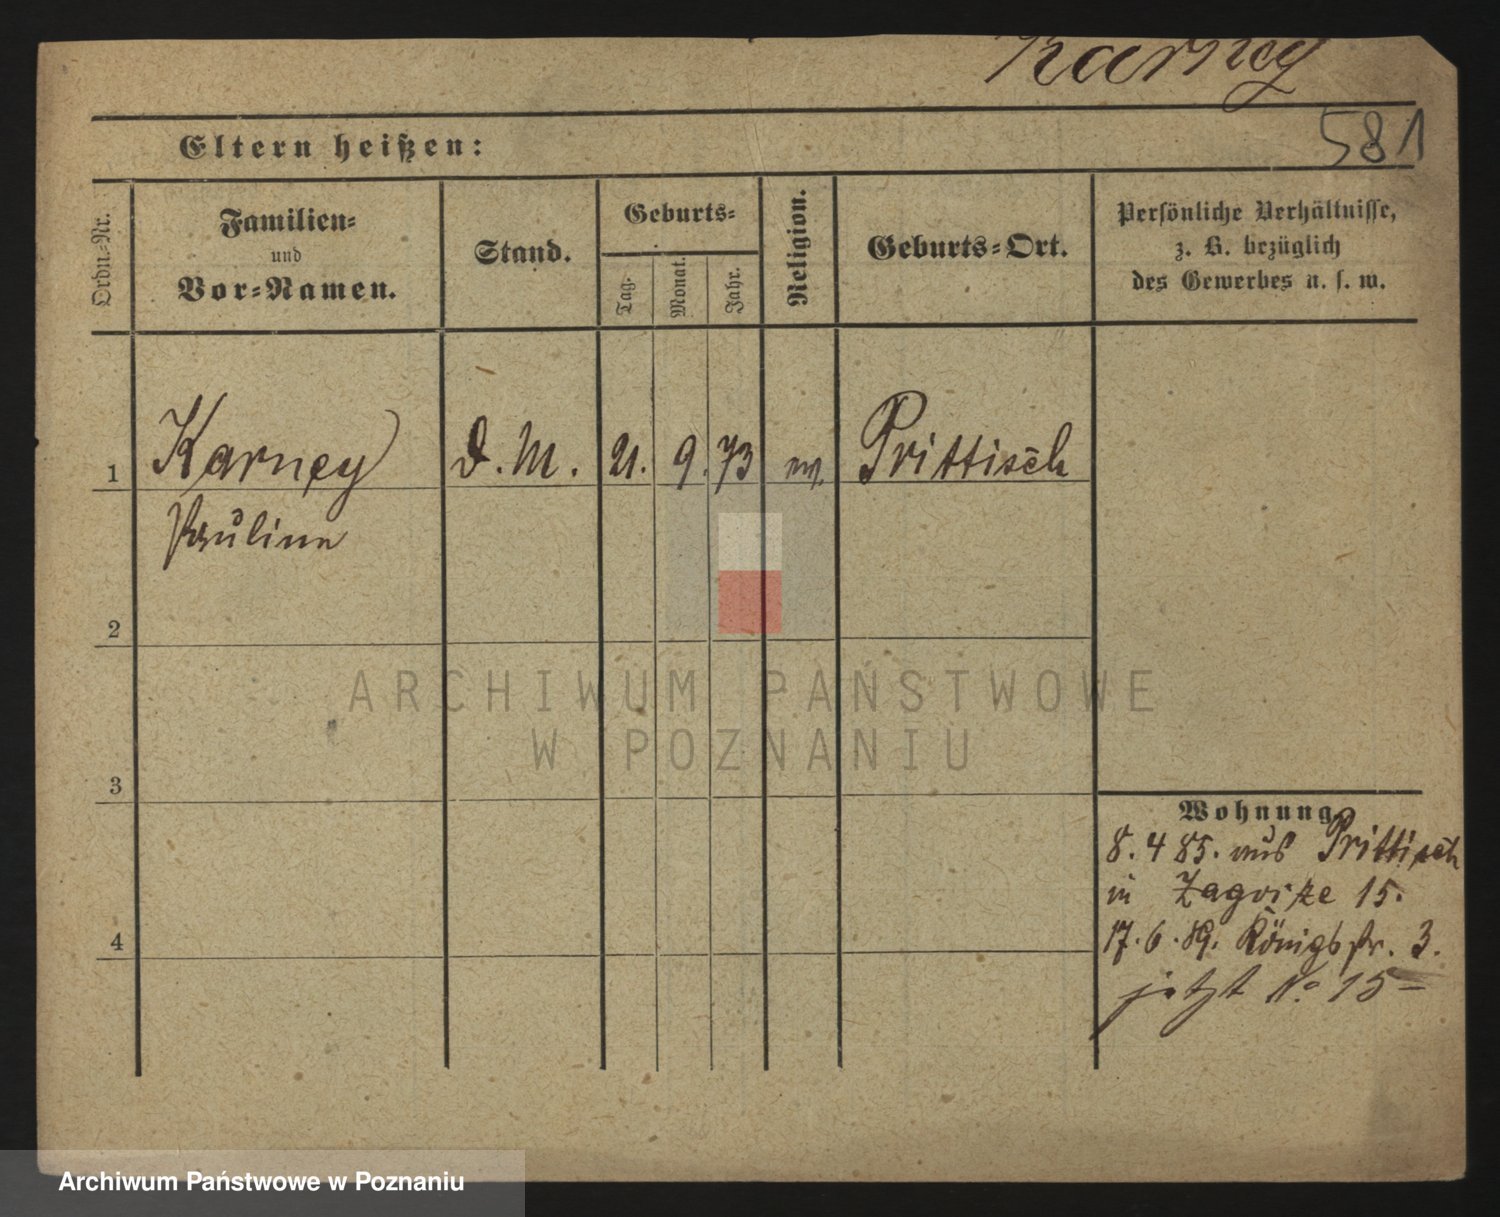 Karney
581
Eltern heißen:
Ordn.-Nr.
Familien-
und
Vor-Namen.
Stand.
Geburts-
Tag.
Monat.
Jahr.
Religion.
Geburts-Ort.
Persönliche Verhältnisse,
z. B. bezüglich
des Gewerbes u. s. w.
1 Karney D. M. 21. 9. 73 Prittisch
Pauline
2
3
4
Wohnung
8. 4 85. aus Prittisch
in Zagorze 15.
17. 6. 89. Königsstr. 3.
jetzt No 15
ARCHIWUM PAŃSTWOWE
W POZNANIU
Archiwum Państwowe w Poznaniu